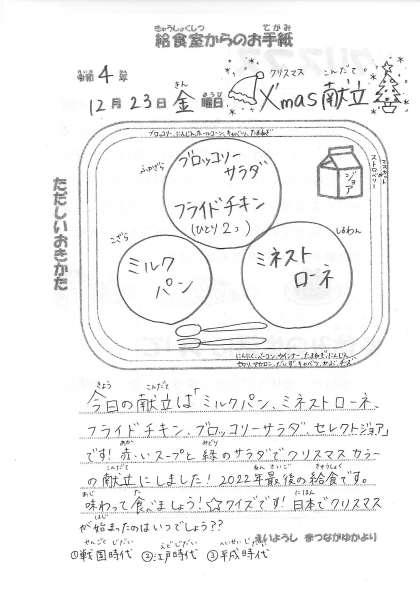 きゅうしょくしつ てがみ
給食室からのお手紙
令和4年
12月23日金曜日
クリスマス こんだて
X'mas献立
ブロッコリー、にんじん、ホールコーン、キャベツ、たまねぎ
ふかざら
ブロッコリー
サラダ
フライドチキン
(ひとり2こ)
ジョア
マスカット
ストロベリー
ただしいおきかた
こざら
ミルク
パン
しるわん
ミネスト
ローネ
にんにく、ベーコン、ウインナー、たまねぎ、にんじん、
セロリ、マカロニ、だいず、キャベツ、かぶ、チーズ
きょう こんだて
今日の献立は「ミルクパン、ミネストローネ、
フライドチキン、ブロッコリーサラダ、セレクトジョア」
あか みどり
です!赤いスープと緑のサラダでクリスマスカラー
こんだて ねん さいご きゅうしょく
の献立にしました!2022年最後の給食です。
あじ た にほん
味わって食べましょう!☆クイズです!日本でクリスマス
はじ
が始まったのはいつでしょう??
えいようし
ゆかより
せんごくじだい えどじだい へいせいじだい
①戦国時代 ②江戸時代 ③平成時代